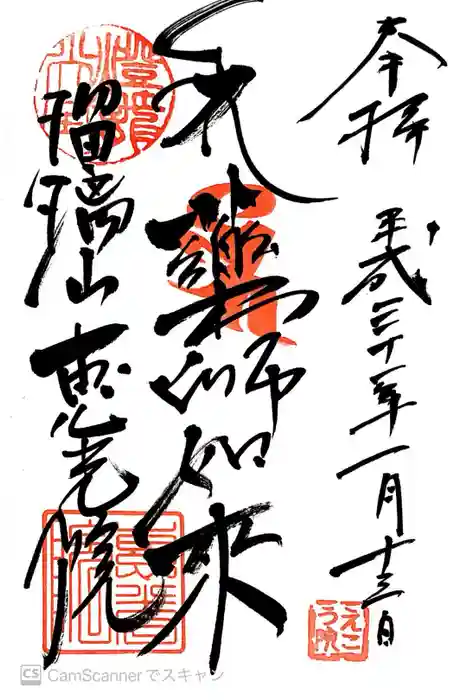 奉拝 平成三十一年一月十三日
薬師如来
瑠璃山 恵光院
えこう院
CS CamScannerでスキャン